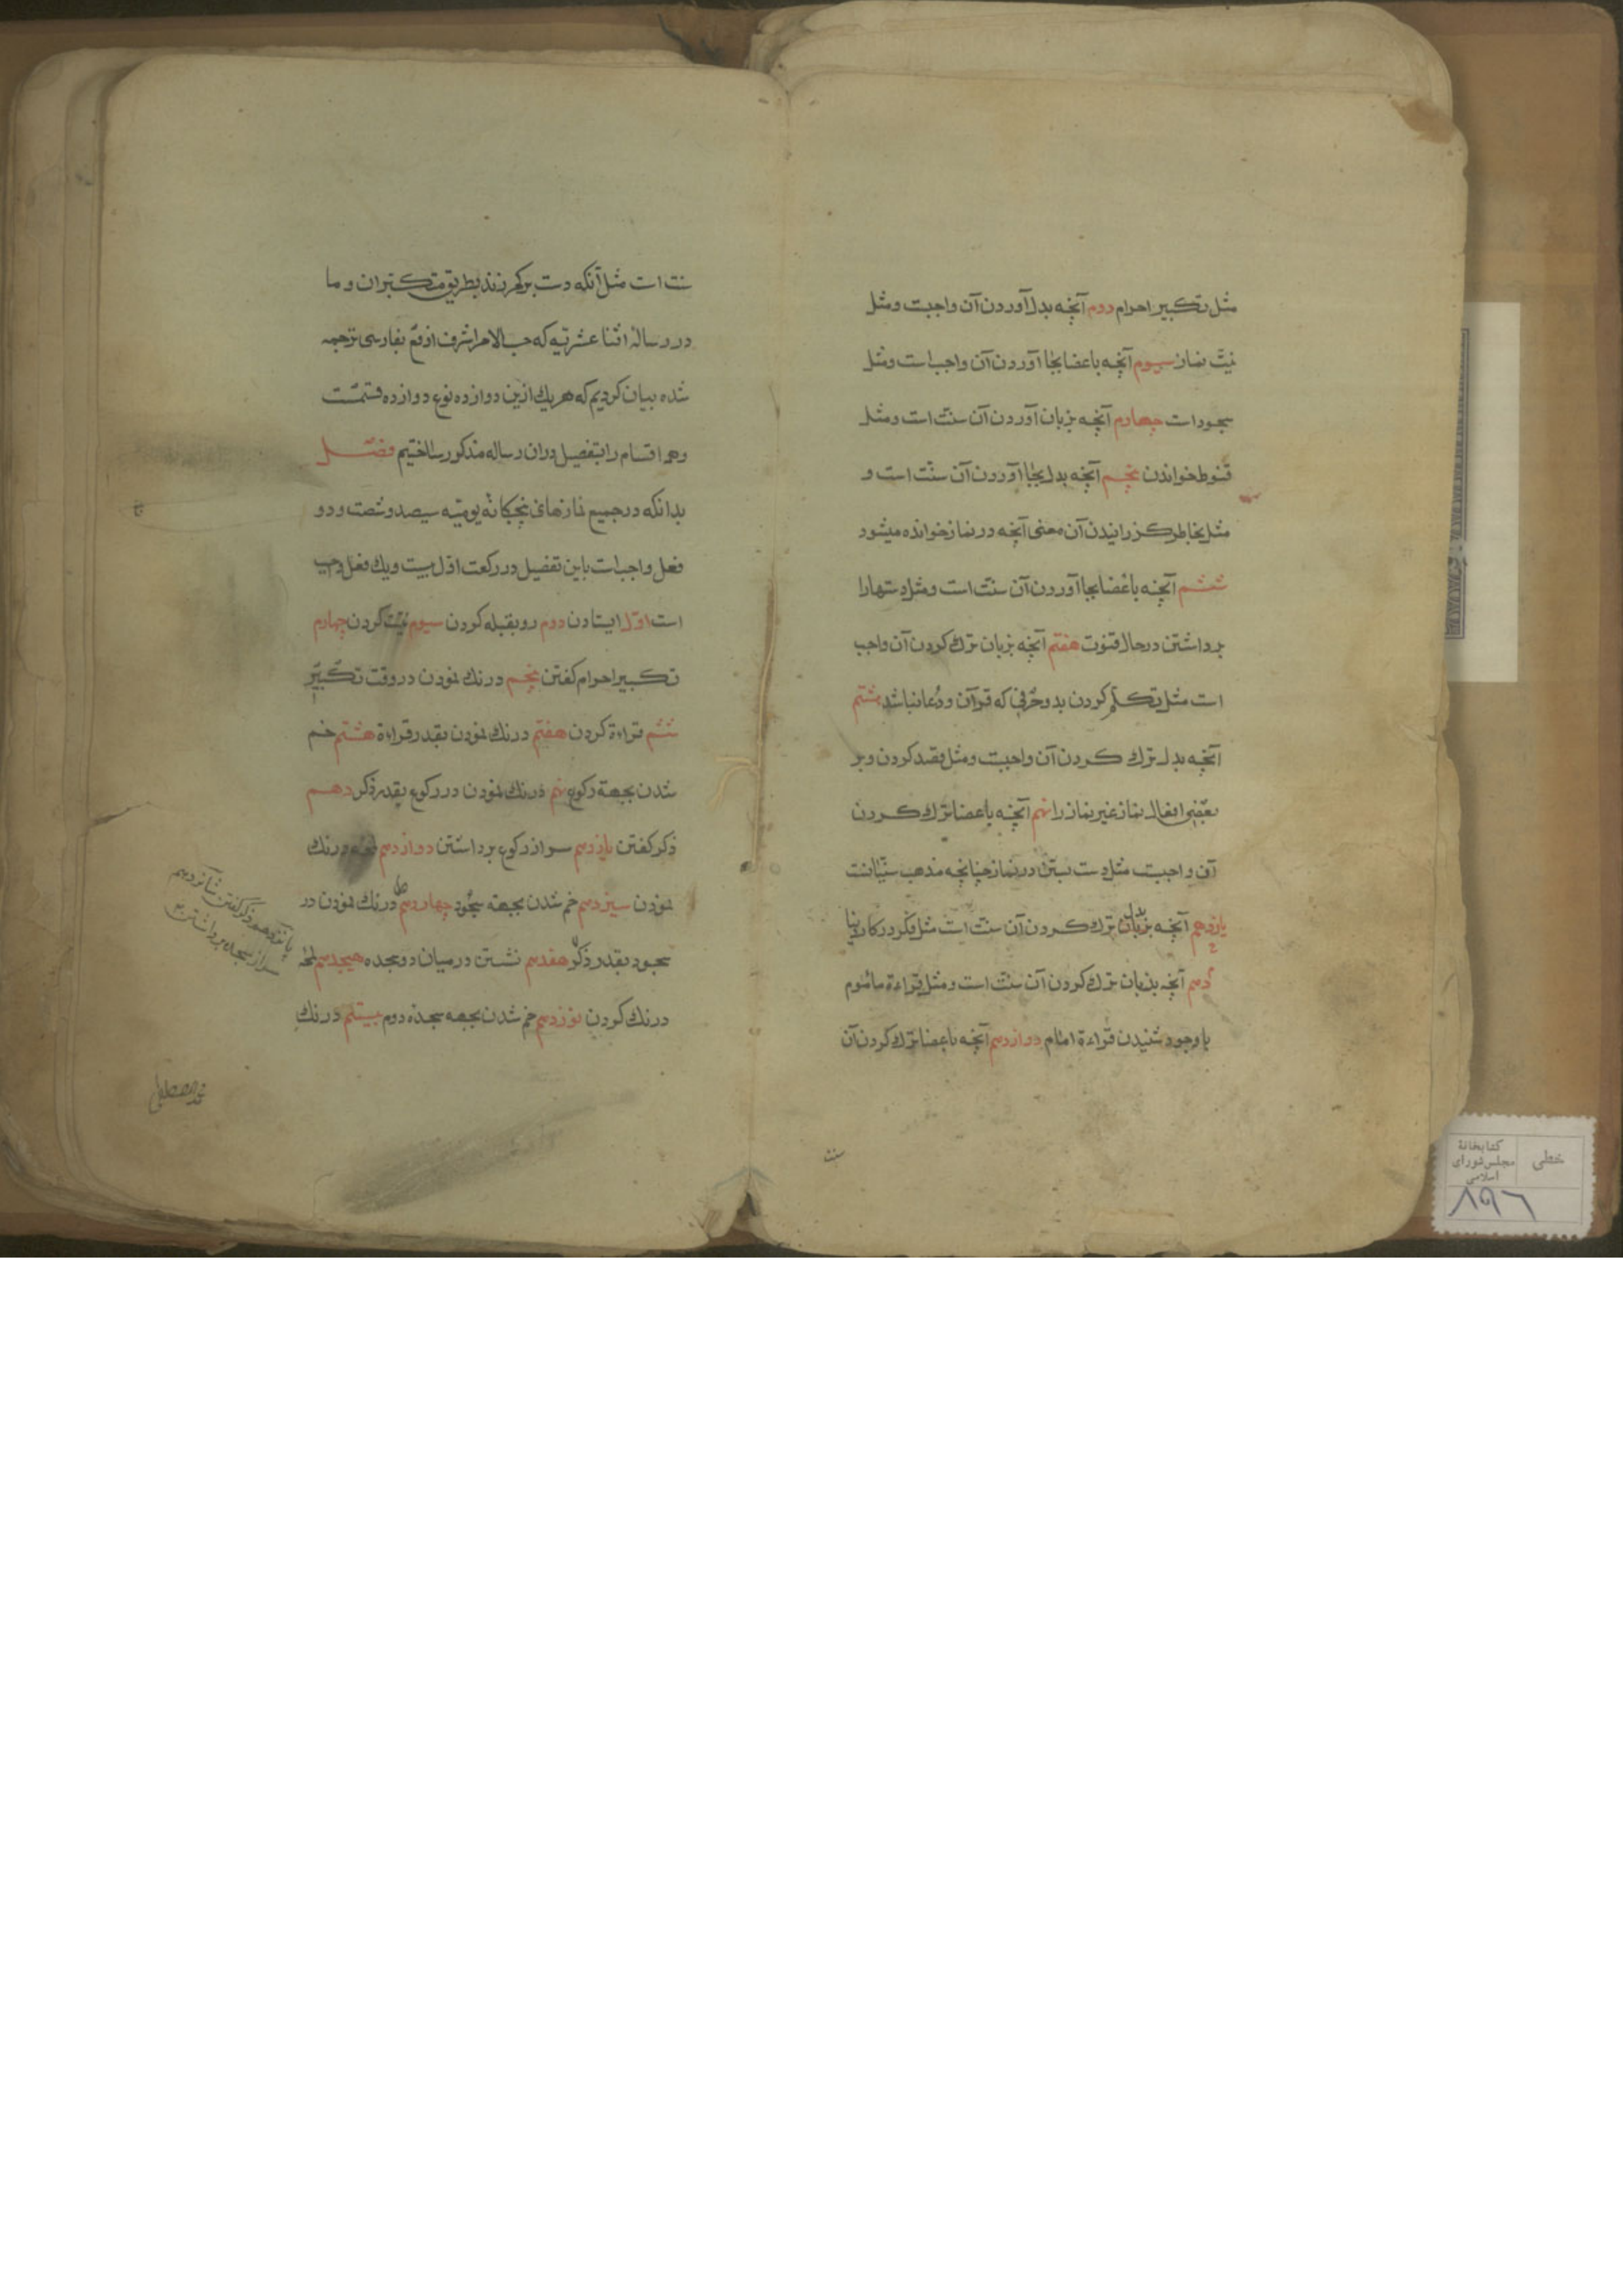 مثل تکبیر احرام دوم آنچه بدل آوردن آن واجبست و مثل
نیّت نماز سیوم آنچه باعضا بجا آوردن آن واجب است و مثل
سجود است چهارم آنچه بزبان آوردن آن سنّت است و مثل
قنوط خواندن پنجم آنچه بدل بجا آوردن آن سنّت است و
مثل بخاطر کذرانیدن آن معنی آنچه در نماز خوانده میشود
ششم آنچه باعضا بجا آوردن آن سنّت است و مثل دستهارا
برداشتن در حال قنوت هفتم آنچه بزبان ترك کردن آن واجب
است مثل تکلّم کردن بدو حرفی که قرآن و دعا نباشد هشتم
آنچه بدل ترك کردن آن واجبست و مثل قصد کردن و بر
بعضی افعال نماز غیر نماز را نهم آنچه باعضا ترك کردن
آن واجبست مثل دست بستن در نماز چنانچه مذهب سنّیانست
یازدهم آنچه بزبان بدل ترك کردن آن سنّت است مثل فکر در کار دنیا
دهم آنچه بزبان ترك کردن آن سنّت است و مثل قراءة مأموم
با وجود شنیدن قراءة امام دوازدهم آنچه باعضا ترك کردن آن
سنت
سنت است مثل آنکه دست بر کمر زند بطریق متکبّران و ما
در رسالهٔ اثنا عشریّه که حسب الامر اشرف ارفع بفارسی ترجمه
شده بیان کردیم که هر یك ازین دوازده نوع دوازده قسمست
و همه اقسام را بتفصیل دران رساله مذکور ساختیم فصل
بدانکه در جمیع نمازهای پنجکانهٔ یومیّه سیصد و شصت و دو
فعل واجب است باین تفصیل در رکعت اوّل بیست و یك فعل واجب
است اوّل ایستادن دوم رو بقبله کردن سیوم نیّت کردن چهارم
تکبیر احرام کفتن پنجم درنك نمودن در وقت تکبیر
ششم قراءة کردن هفتم درنك نمودن بقدر قراءة هشتم خم
شدن بجهة رکوع نهم درنك نمودن در رکوع بقدر ذکر دهم
ذکر کفتن یازدهم سر از رکوع برداشتن دوازدهم لحظه درنك
نمودن سیزدهم خم شدن بجهة سجود چهاردهم درنك نمودن در
سجود بقدر ذکر هفدهم نشستن در میان دو سجده هیجدهم لحظه
درنك کردن نوزدهم خم شدن بجهه سجده دوم بیستم درنك
پانزدهم ذکر کفتن شانزدهم
سر از سجده برداشتن
خطی
کتابخانهٔ
مجلس شورای
اسلامی
۸۹۶